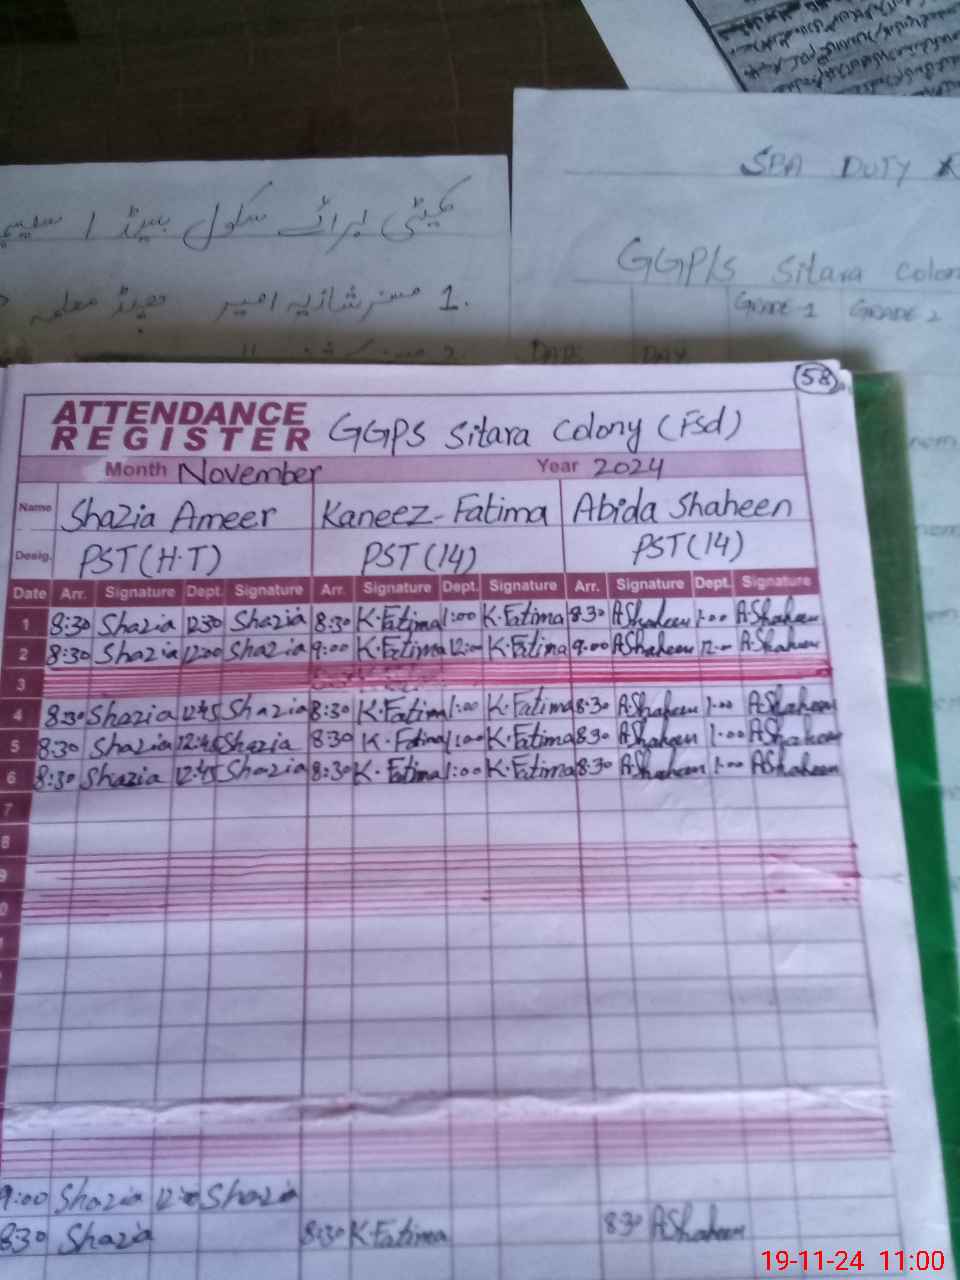 SPA DUTY
کمیٹی برائے سکول ہیڈ /
GGP/s Sitara Colon
1. مسز شازیہ امیر ہیڈ معلمہ
GRADE 1 GRADE 2
DATE DAY
58
ATTENDANCE REGISTER GGPS Sitara Colony (Fsd)
Month November Year 2024
Name Shazia Ameer Kaneez-Fatima Abida Shaheen
Desig. PST(H.T) PST(14) PST(14)
Date Arr. Signature Dept. Signature Arr. Signature Dept. Signature Arr. Signature Dept. Signature
1 8:30 Shazia 12:30 Shazia 8:30 K.Fatima 1:00 K.Fatima 8:30 AShaheen 1:00 AShaheen
2 8:30 Shazia 12:00 Shazia 9:00 K.Fatima 12:00 K.Fatima 9:00 AShaheen 12:00 AShaheen
3
4 8:30 Shazia 12:45 Shazia 8:30 K.Fatima 1:00 K.Fatima 8:30 AShaheen 1:00 AShaheen
5 8:30 Shazia 12:45 Shazia 8:30 K.Fatima 1:00 K.Fatima 8:30 AShaheen 1:00 AShaheen
6 8:30 Shazia 12:45 Shazia 8:30 K.Fatima 1:00 K.Fatima 8:30 AShaheen 1:00 AShaheen
7
8
9
0
9:00 Shazia 12:00 Shazia
8:30 Shazia 8:30 K.Fatima 8:30 AShaheen
19-11-24 11:00